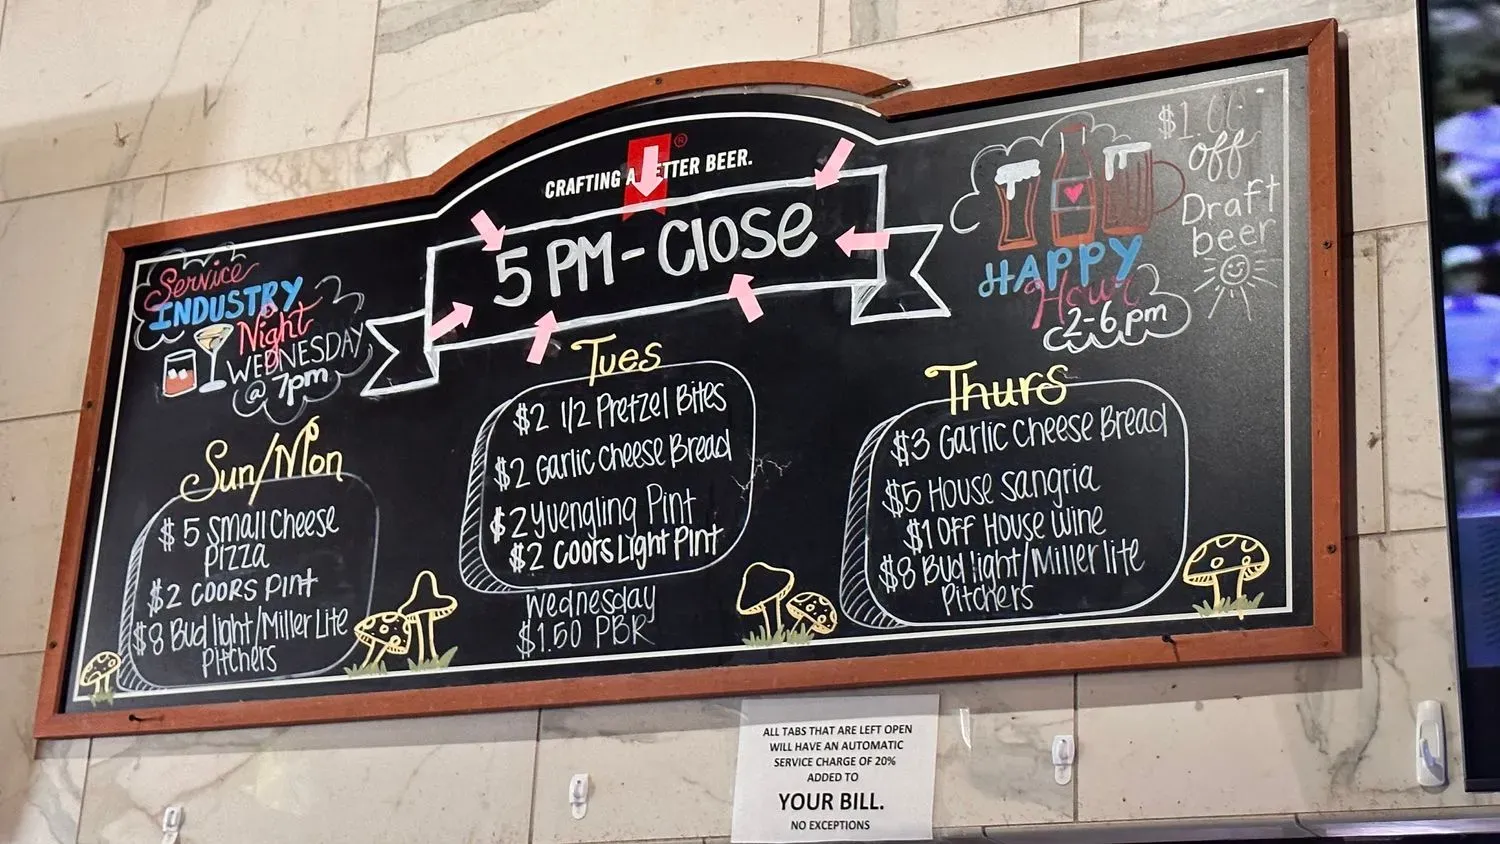 CRAFTING A BETTER BEER.
5 PM - Close
Service
INDUSTRY
Night
WEDNESDAY
@ 7pm
$1.00
off
Draft
beer
HAPPY
Hour
2-6 pm
Sun/Mon
$5 Small Cheese
Pizza
$2 Coors Pint
$8 Bud light/Miller Lite
Pitchers
Tues
$2 1/2 Pretzel Bites
$2 Garlic Cheese Bread
$2 Yuengling Pint
$2 Coors Light Pint
Wednesday
$1.50 PBR
Thurs
$3 Garlic Cheese Bread
$5 House Sangria
$1 OFF House Wine
$8 Bud light/Miller lite
Pitchers
ALL TABS THAT ARE LEFT OPEN
WILL HAVE AN AUTOMATIC
SERVICE CHARGE OF 20%
ADDED TO
YOUR BILL.
NO EXCEPTIONS